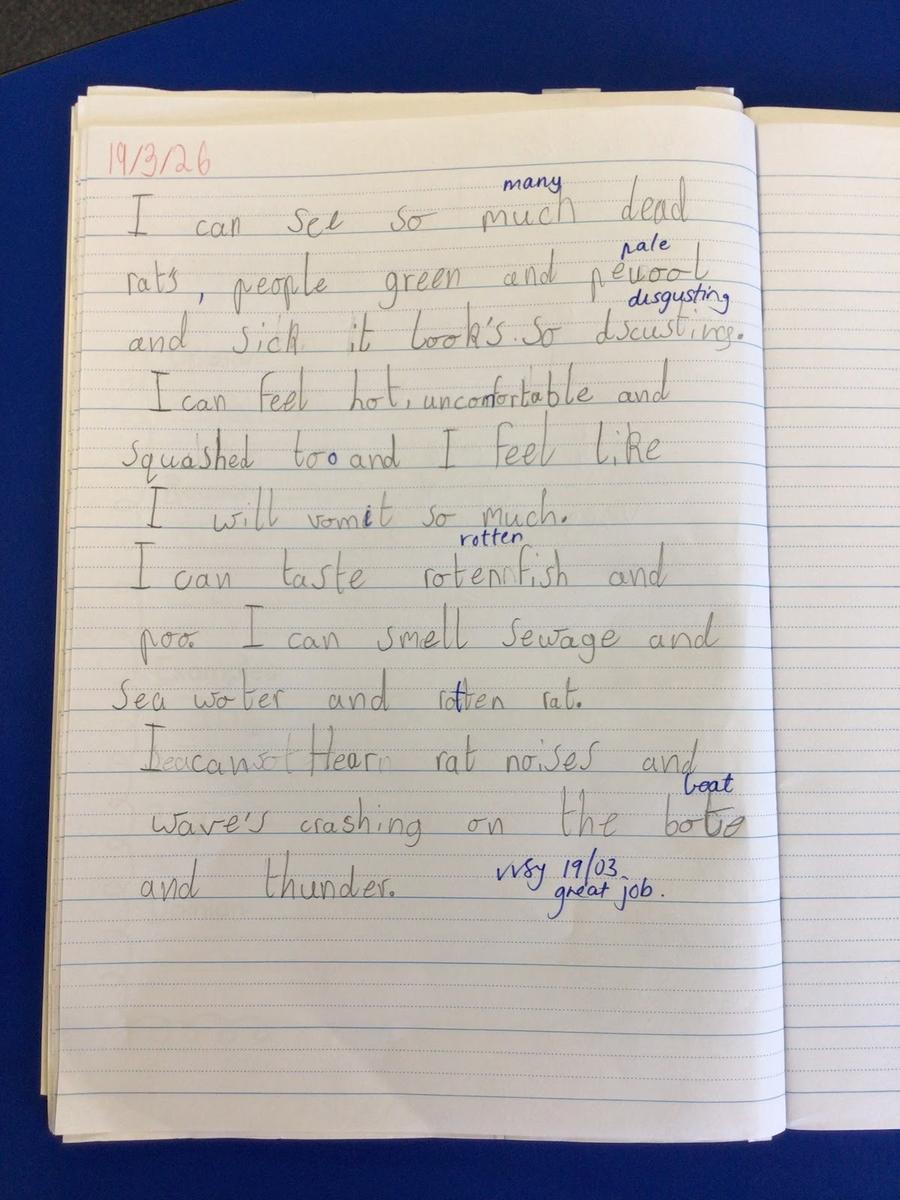 19/3/26
many
I can see so much dead
pale
rat's, people green and
disgusting
and sick it look's so dscusting.
I can feel hot, uncomfortable and
squashed too and I feel like
I will vomit so much.
rotten
I can taste rotenn fish and
poo. I can smell sewage and
sea woter and rotten rat.
I can Hear rat noises and
boat
wave's crashing on the bote
and thunder.
19/03
great job.